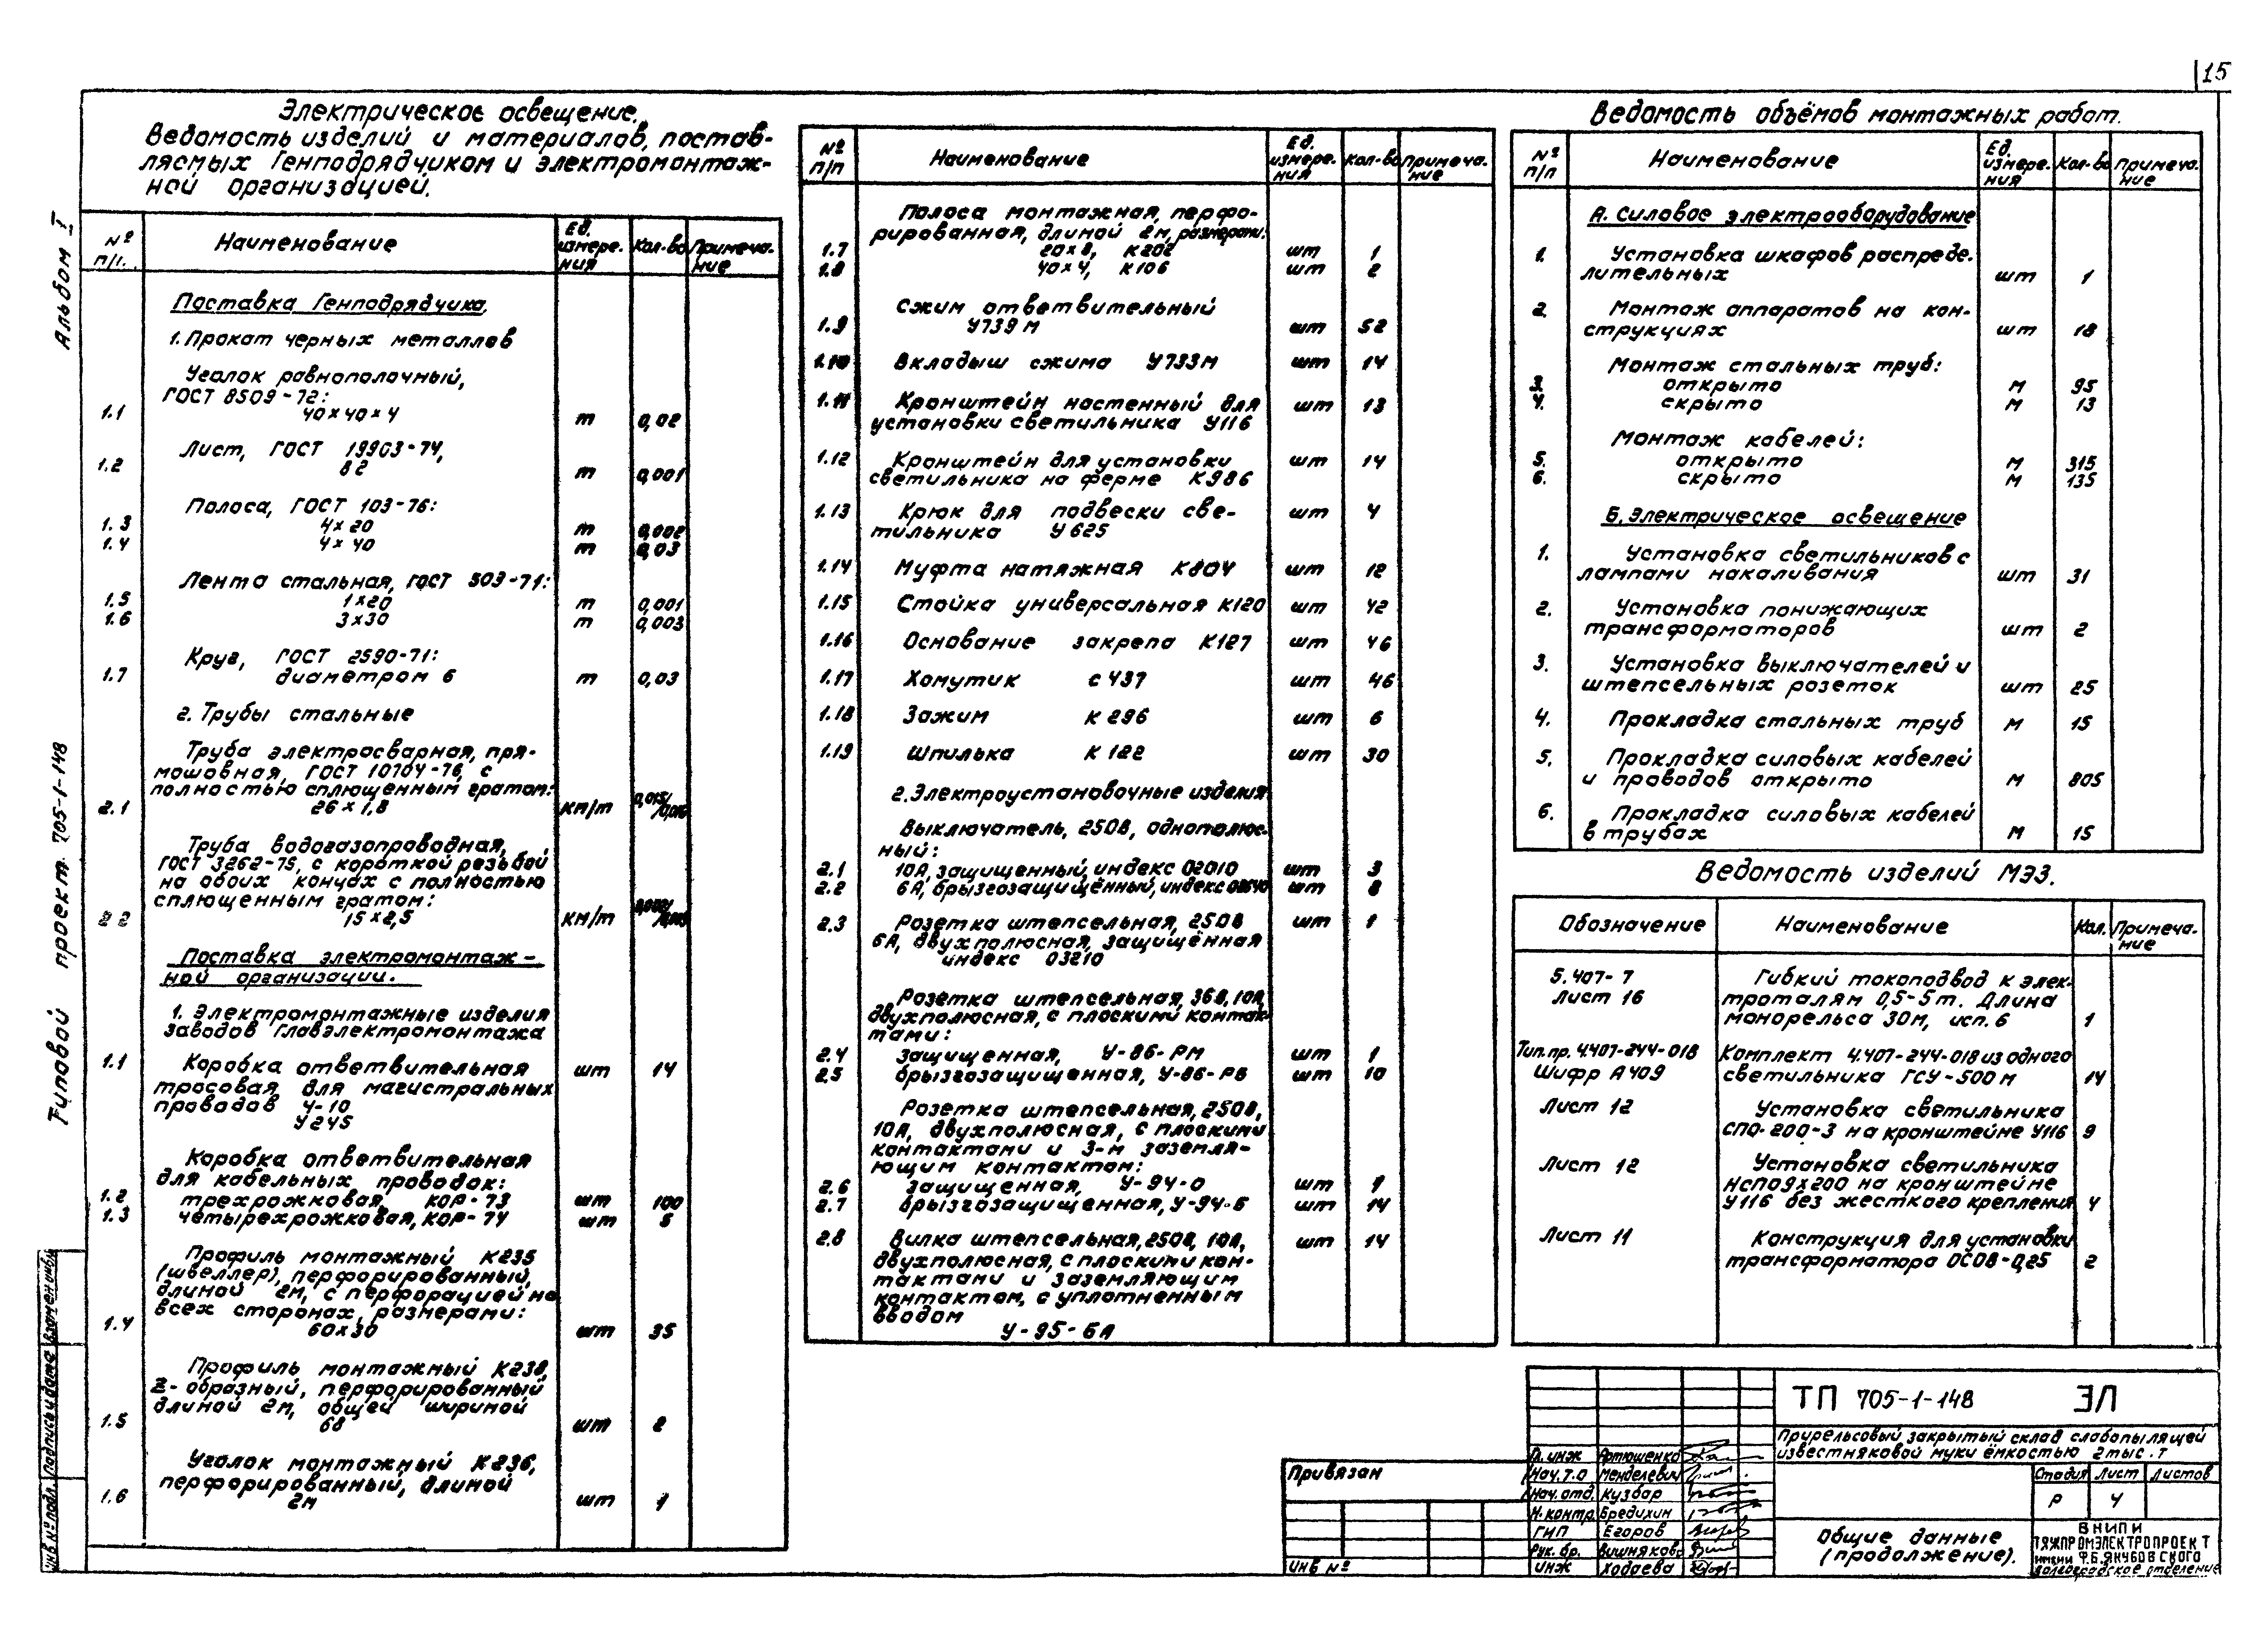 15
Альбом I
Типовой проект 705-1-148
Электрическое освещение.
Ведомость изделий и материалов, постав-
ляемых Генподрядчиком и электромонтаж-
ной организацией.
№ п/п Наименование Ед. измере- ния Кол-во Примеча- ние
Поставка Генподрядчика.
1. Прокат черных металлов
Уголок равнополочный,
ГОСТ 8509-72:
1.1 40×40×4 т 0,02
Лист, ГОСТ 19903-74,
1.2 δ2 т 0,001
Полоса, ГОСТ 103-76:
1.3 4×20 т 0,002
1.4 4×40 т 0,03
Лента стальная, ГОСТ 503-71:
1.5 1×20 т 0,001
1.6 3×30 т 0,003
Круг, ГОСТ 2590-71:
1.7 диаметром 6 т 0,03
2. Трубы стальные
Труба электросварная, пря-
мошовная, ГОСТ 10704-76, с
полностью сплющенным гратом:
2.1 26×1,8 км/т 0,015/
Труба водогазопроводная,
ГОСТ 3262-75, с короткой резьбой
на обоих концах с полностью
сплющенным гратом:
2.2 15×2,5 км/т
Поставка электромонтаж-
ной организации.
1. Электромонтажные изделия
заводов Главэлектромонтажа
1.1 Коробка ответвительная шт 14
тросовая для магистральных
проводов 4-10
У245
Коробка ответвительная
для кабельных проводок:
1.2 трехрожковая, КОР-73 шт 100
1.3 четырехрожковая, КОР-74 шт 5
Профиль монтажный К235
(швеллер), перфорированный,
длиной 2м, с перфорацией на
всех сторонах, размерами:
1.4 60×30 шт 35
Профиль монтажный К238,
Z-образный, перфорированный
длиной 2м, общей шириной
1.5 68 шт 2
Уголок монтажный К236,
перфорированный, длиной
1.6 2м шт 1
№ п/п Наименование Ед. измере- ния Кол-во Примеча- ние
Полоса монтажная, перфо-
рированная, длиной 2м, размерами:
1.7 20×2, К202 шт 1
1.8 40×4, К106 шт 2
Сжим ответвительный
1.9 У739М шт 52
1.10 Вкладыш сжима У733М шт 14
1.11 Кронштейн настенный для шт 13
установки светильника У116
1.12 Кронштейн для установки шт 14
светильника на ферме К986
1.13 Крюк для подвески све- шт 4
тильника У625
1.14 Муфта натяжная К804 шт 12
1.15 Стойка универсальная К120 шт 42
1.16 Основание закрепа К127 шт 46
1.17 Хомутик С437 шт 46
1.18 Зажим К296 шт 6
1.19 Шпилька К122 шт 30
2. Электроустановочные изделия
Выключатель, 250В, однополюс-
ный:
2.1 10А, защищенный, индекс 02010 шт 3
2.2 6А, брызгозащищённый, индекс шт 8
2.3 Розетка штепсельная, 250В шт 1
6А, двухполюсная, защищённая
индекс 03210
Розетка штепсельная, 36В, 10А,
двухполюсная, с плоскими контак-
тами:
2.4 защищенная, У-86-РМ шт 1
2.5 брызгозащищенная, У-86-РБ шт 10
Розетка штепсельная, 250В,
10А, двухполюсная, с плоскими
контактами и 3-м заземля-
ющим контактом:
2.6 защищенная, У-94-0 шт 1
2.7 брызгозащищенная, У-94-Б шт 14
2.8 Вилка штепсельная, 250В, 10А, шт 14
двухполюсная, с плоскими кон-
тактами и заземляющим
контактом, с уплотненным
вводом
У-95-6А
Ведомость объёмов монтажных работ.
№ п/п Наименование Ед. измере- ния Кол-во Примеча- ние
А. Силовое электрооборудование
1. Установка шкафов распреде-
лительных шт 1
2. Монтаж аппаратов на кон-
струкциях шт 18
Монтаж стальных труб:
3. открыто м 95
4. скрыто м 13
Монтаж кабелей:
5. открыто м 315
6. скрыто м 135
Б. Электрическое освещение
1. Установка светильников с
лампами накаливания шт 31
2. Установка понижающих
трансформаторов шт 2
3. Установка выключателей и
штепсельных розеток шт 25
4. Прокладка стальных труб м 15
5. Прокладка силовых кабелей
и проводов открыто м 805
6. Прокладка силовых кабелей
в трубах м 15
Ведомость изделий МЭЗ.
Обозначение Наименование Кол. Примеча- ние
5.407-7 Гибкий токоподвод к элек-
Лист 16 троталям 0,5-5т. Длина
монорельса 30м, исп. 6 1
Тип.пр. 4.407-244-018 Комплект 4.407-244-018 из одного
Шифр А409 светильника ГСУ-500м 14
Лист 12 Установка светильника
СПО-200-3 на кронштейне У116 9
Лист 12 Установка светильника
НСП09×200 на кронштейне
У116 без жесткого крепления 4
Лист 11 Конструкция для установки
трансформатора ОСОВ-0,25 2
ТП 705-1-148 ЭЛ
Прирельсовый закрытый склад слабопылящей
известняковой муки ёмкостью 2 тыс. т
Стадия Лист Листов
Р 4
Общие данные
(продолжение).
ВНИПИ
ТЯЖПРОМЭЛЕКТРОПРОЕКТ
имени Ф.Б.ЯКУБОВСКОГО
Волгоградское отделение
Гл. инж Артюшенко
Нач. т.о Менделевич
Нач. отд. Кузбар
Н. контр Бредихин
ГИП Егоров
Рук. бр. Вишнякова
инж Ходаева
Привязан
ИНВ №
Инв № подл. Подпись и дата Взамен инв №